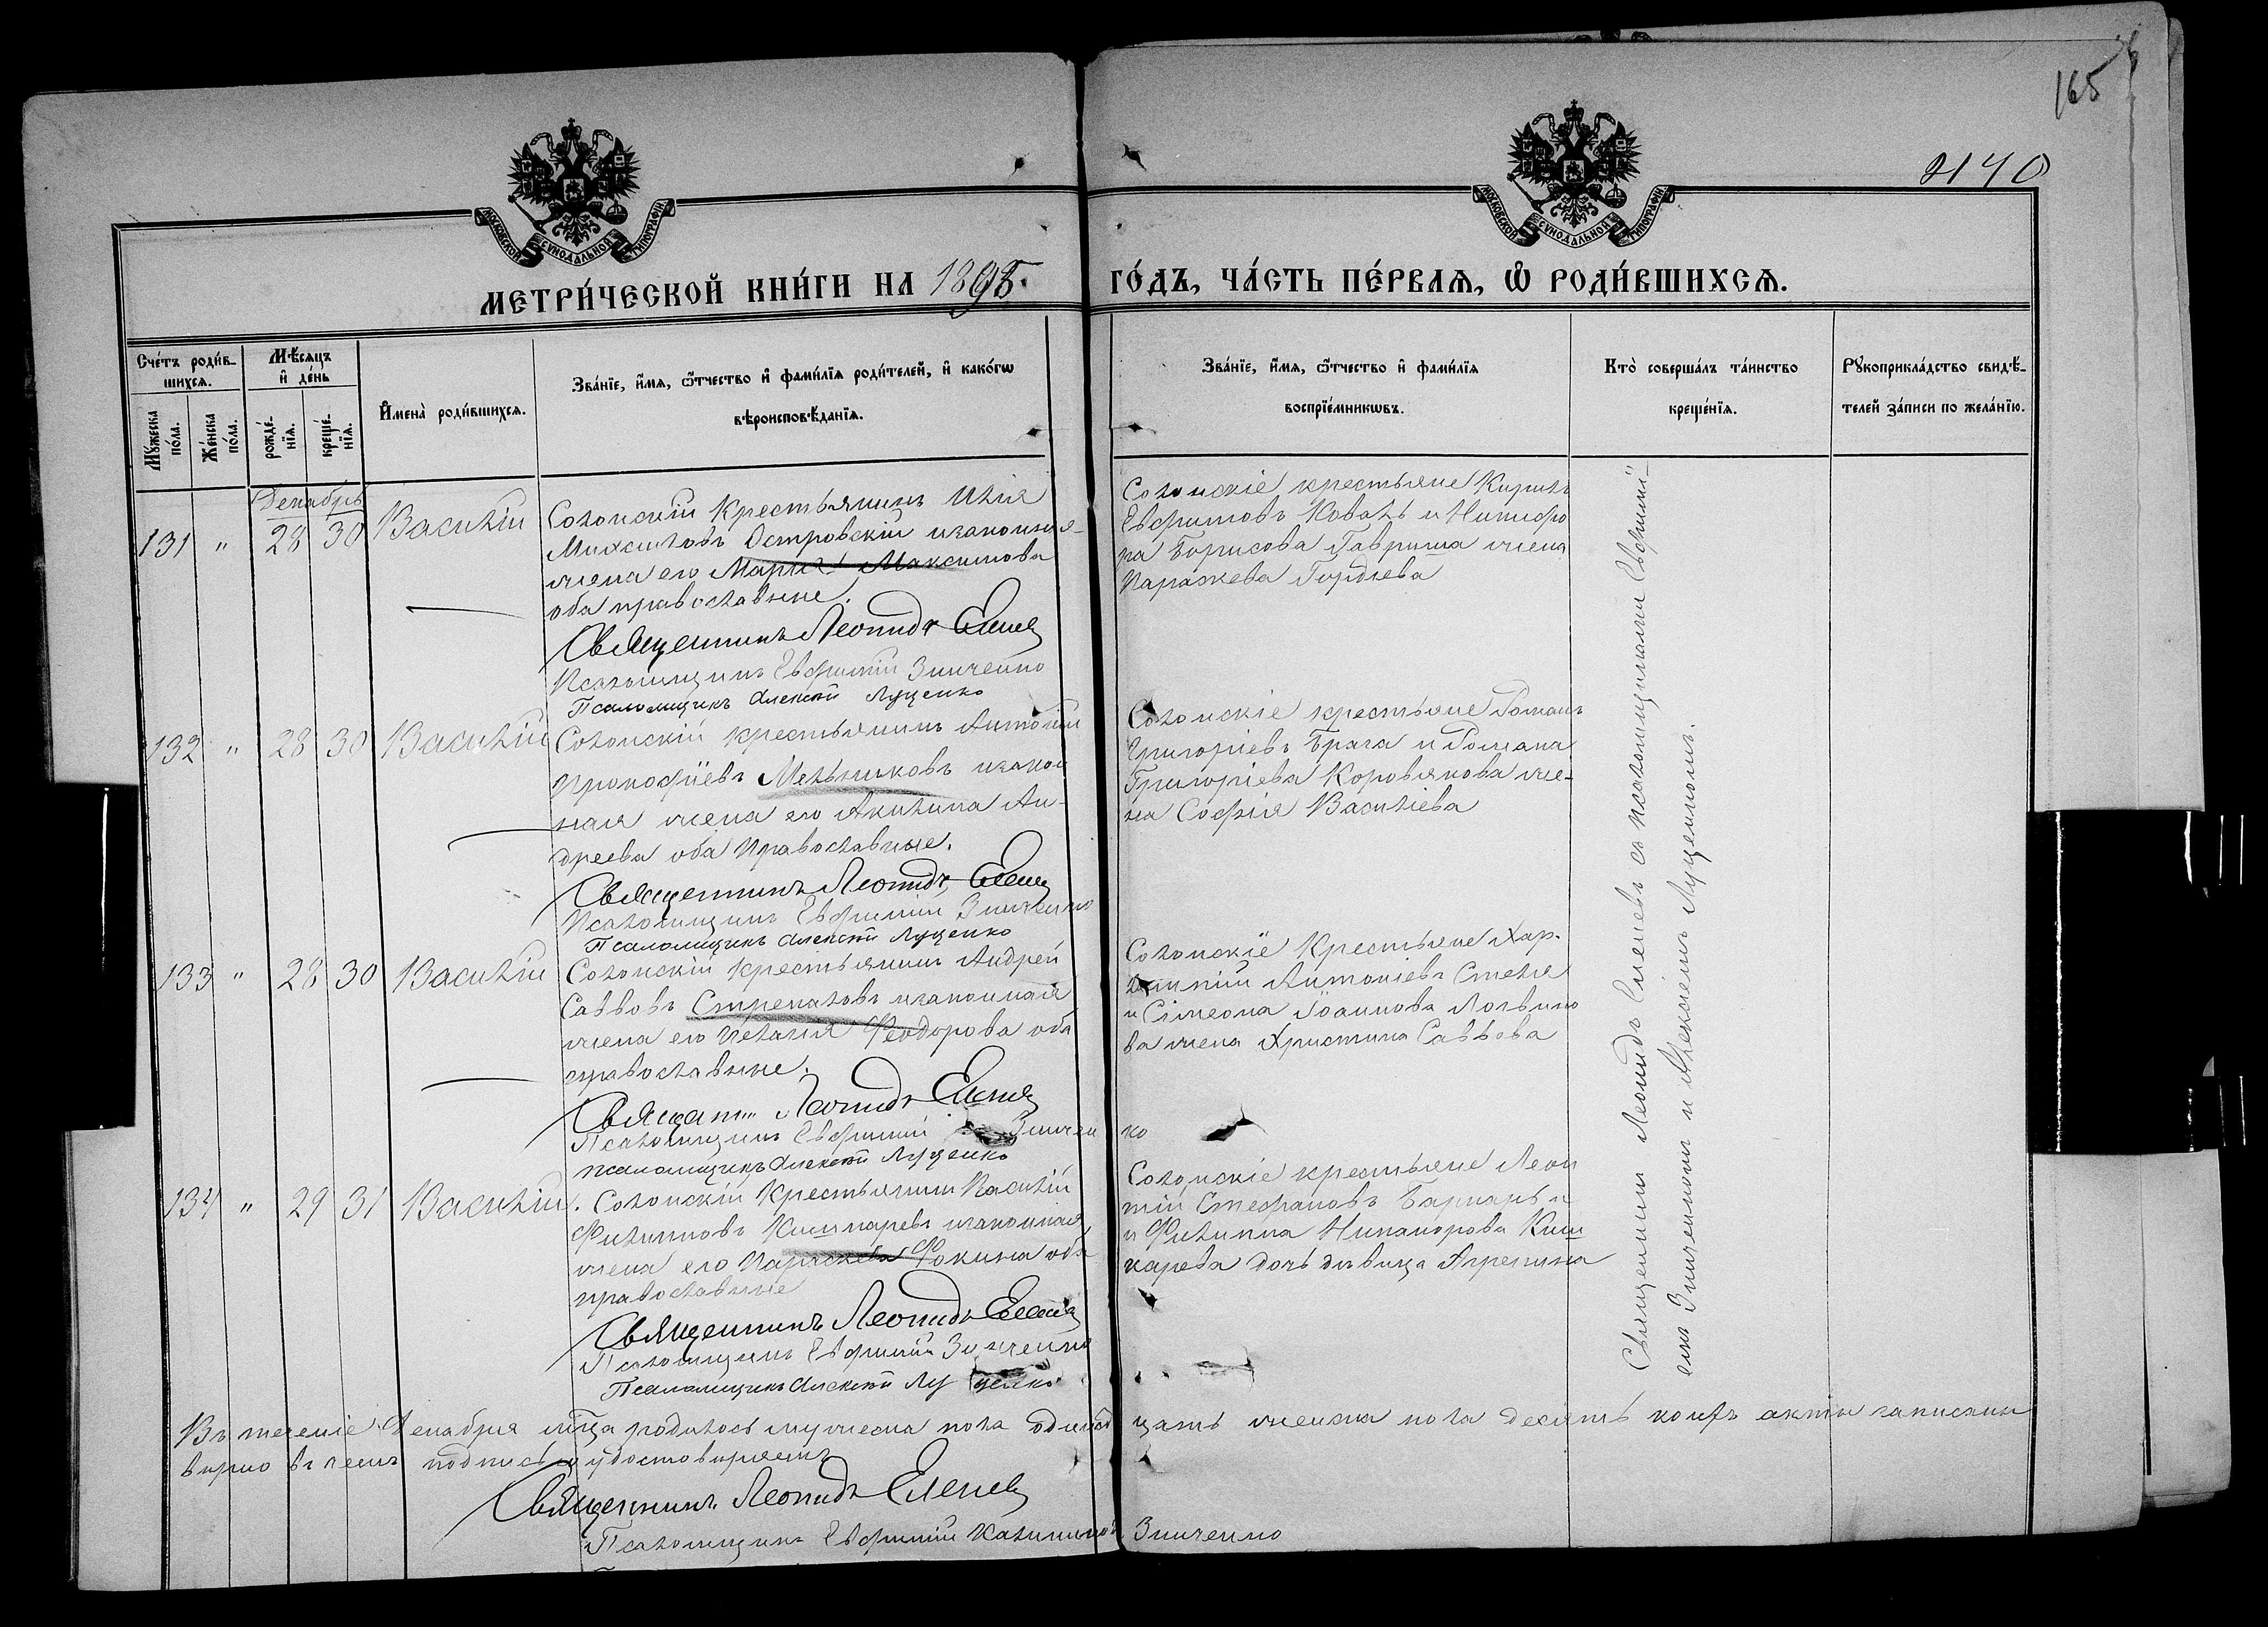 165
2140
МОСКОВСКОЙ СѴНОДАЛЬНОЙ ТИПОГРАФІИ
МОСКОВСКОЙ СѴНОДАЛЬНОЙ ТИПОГРАФІИ
МЕТРИ́ЧЕСКОЙ КНИ́ГИ НА 1895. ГО́ДЪ, ЧА́СТЬ ПЕ́РВАѦ, Ѿ РОДИ́ВШИХСѦ.
Сче́тъ роди́в-
шихсѧ.
Мꙋ́жеска по́ла.
Же́нска по́ла.
Мѣ́сѧцъ
и҆ де́нь
рожде́-
нїѧ.
креще́-
нїѧ.
И҆мена̀ роди́вшихсѧ.
Зва́нїе, и҆́мѧ, ѻ҆́тчество и҆ фами́лїѧ роди́телей, и҆ како́гѡ
вѣроисповѣ́данїѧ.
Зва́нїе, и҆́мѧ, ѻ҆́тчество и҆ фами́лїѧ
воспрїе́мникѡвъ.
Кто̀ соверша́лъ та́инство
креще́нїѧ.
Рꙋкоприкла́дство свидѣ́-
телей за́писи по жела́нїю.
Декабрь
131 " 28 30 Василій
Солонскій крестьянинъ Илія
Михаиловъ Островскій и законная
жена его Марія Максимова
оба православные.
Священникъ Леонидъ Еленев
Псаломщикъ Евфимій Зинченко
Псаломщикъ Алексѣй Луценко
Солонскіе крестьяне Кирилъ
Евфимовъ Коваль и Никифо
ра Борисова Гавриша жена
Параскева Гордіева
132 " 28 30 Василій
Солонскій крестьянинъ Антоній
Прокофіевъ Мельниковъ и закон
ная жена его Акилина Ан-
дреева оба Православные.
Священникъ Леонидъ Еленев
Псаломщикъ Евфимій Зинченко
Псаломщикъ Алексѣй Луценко
Солонскіе крестьяне Романъ
Григоріевъ Брага и Романа
Григоріева Коровякова же-
на Софія Василіева
133 " 28 30 Василій
Солонскій крестьянинъ Андрей
Саввовъ Стрекаловъ и законная
жена его Пелагія Феодорова оба
православные.
Священ Леонидъ Еленев
Псаломщикъ Евфимій Зинчен ко
псаломщикъ Алексѣй Луценко
Солонскіе крестьяне Хар-
лампій Антоніевъ Стеля
и Сімеона Іоаннова Логвино
ва жена Христина Саввова
134 " 29 31 Василій.
Солонскій крестьянинъ Василій
Филипповъ Кишкаревъ и законная
жена его Параскева Фокина оба
православные
Священникъ Леонидъ Еленев
Псаломщикъ Евфимій Зинченко
Псаломщикъ Алексѣй Луценко
Солонскіе крестьяне Леон
тій Стефановъ
и Филиппа Никанорова Киш
карева дочь дѣвица Агрепина
Священникъ Леонидъ Еленевъ съ псаломщиками Евфимі-
емъ Зинченкомъ и Алексіемъ Луценкомъ.
Въ теченіе Декабря мѣсца родилось мужеска пола одинад цать женска пола десять коихъ акты записаны
вѣрно въ чемъ подписью удостовѣряемъ
Священникъ Леонидъ Еленев
Псаломщикъ Евфимій Зинченко